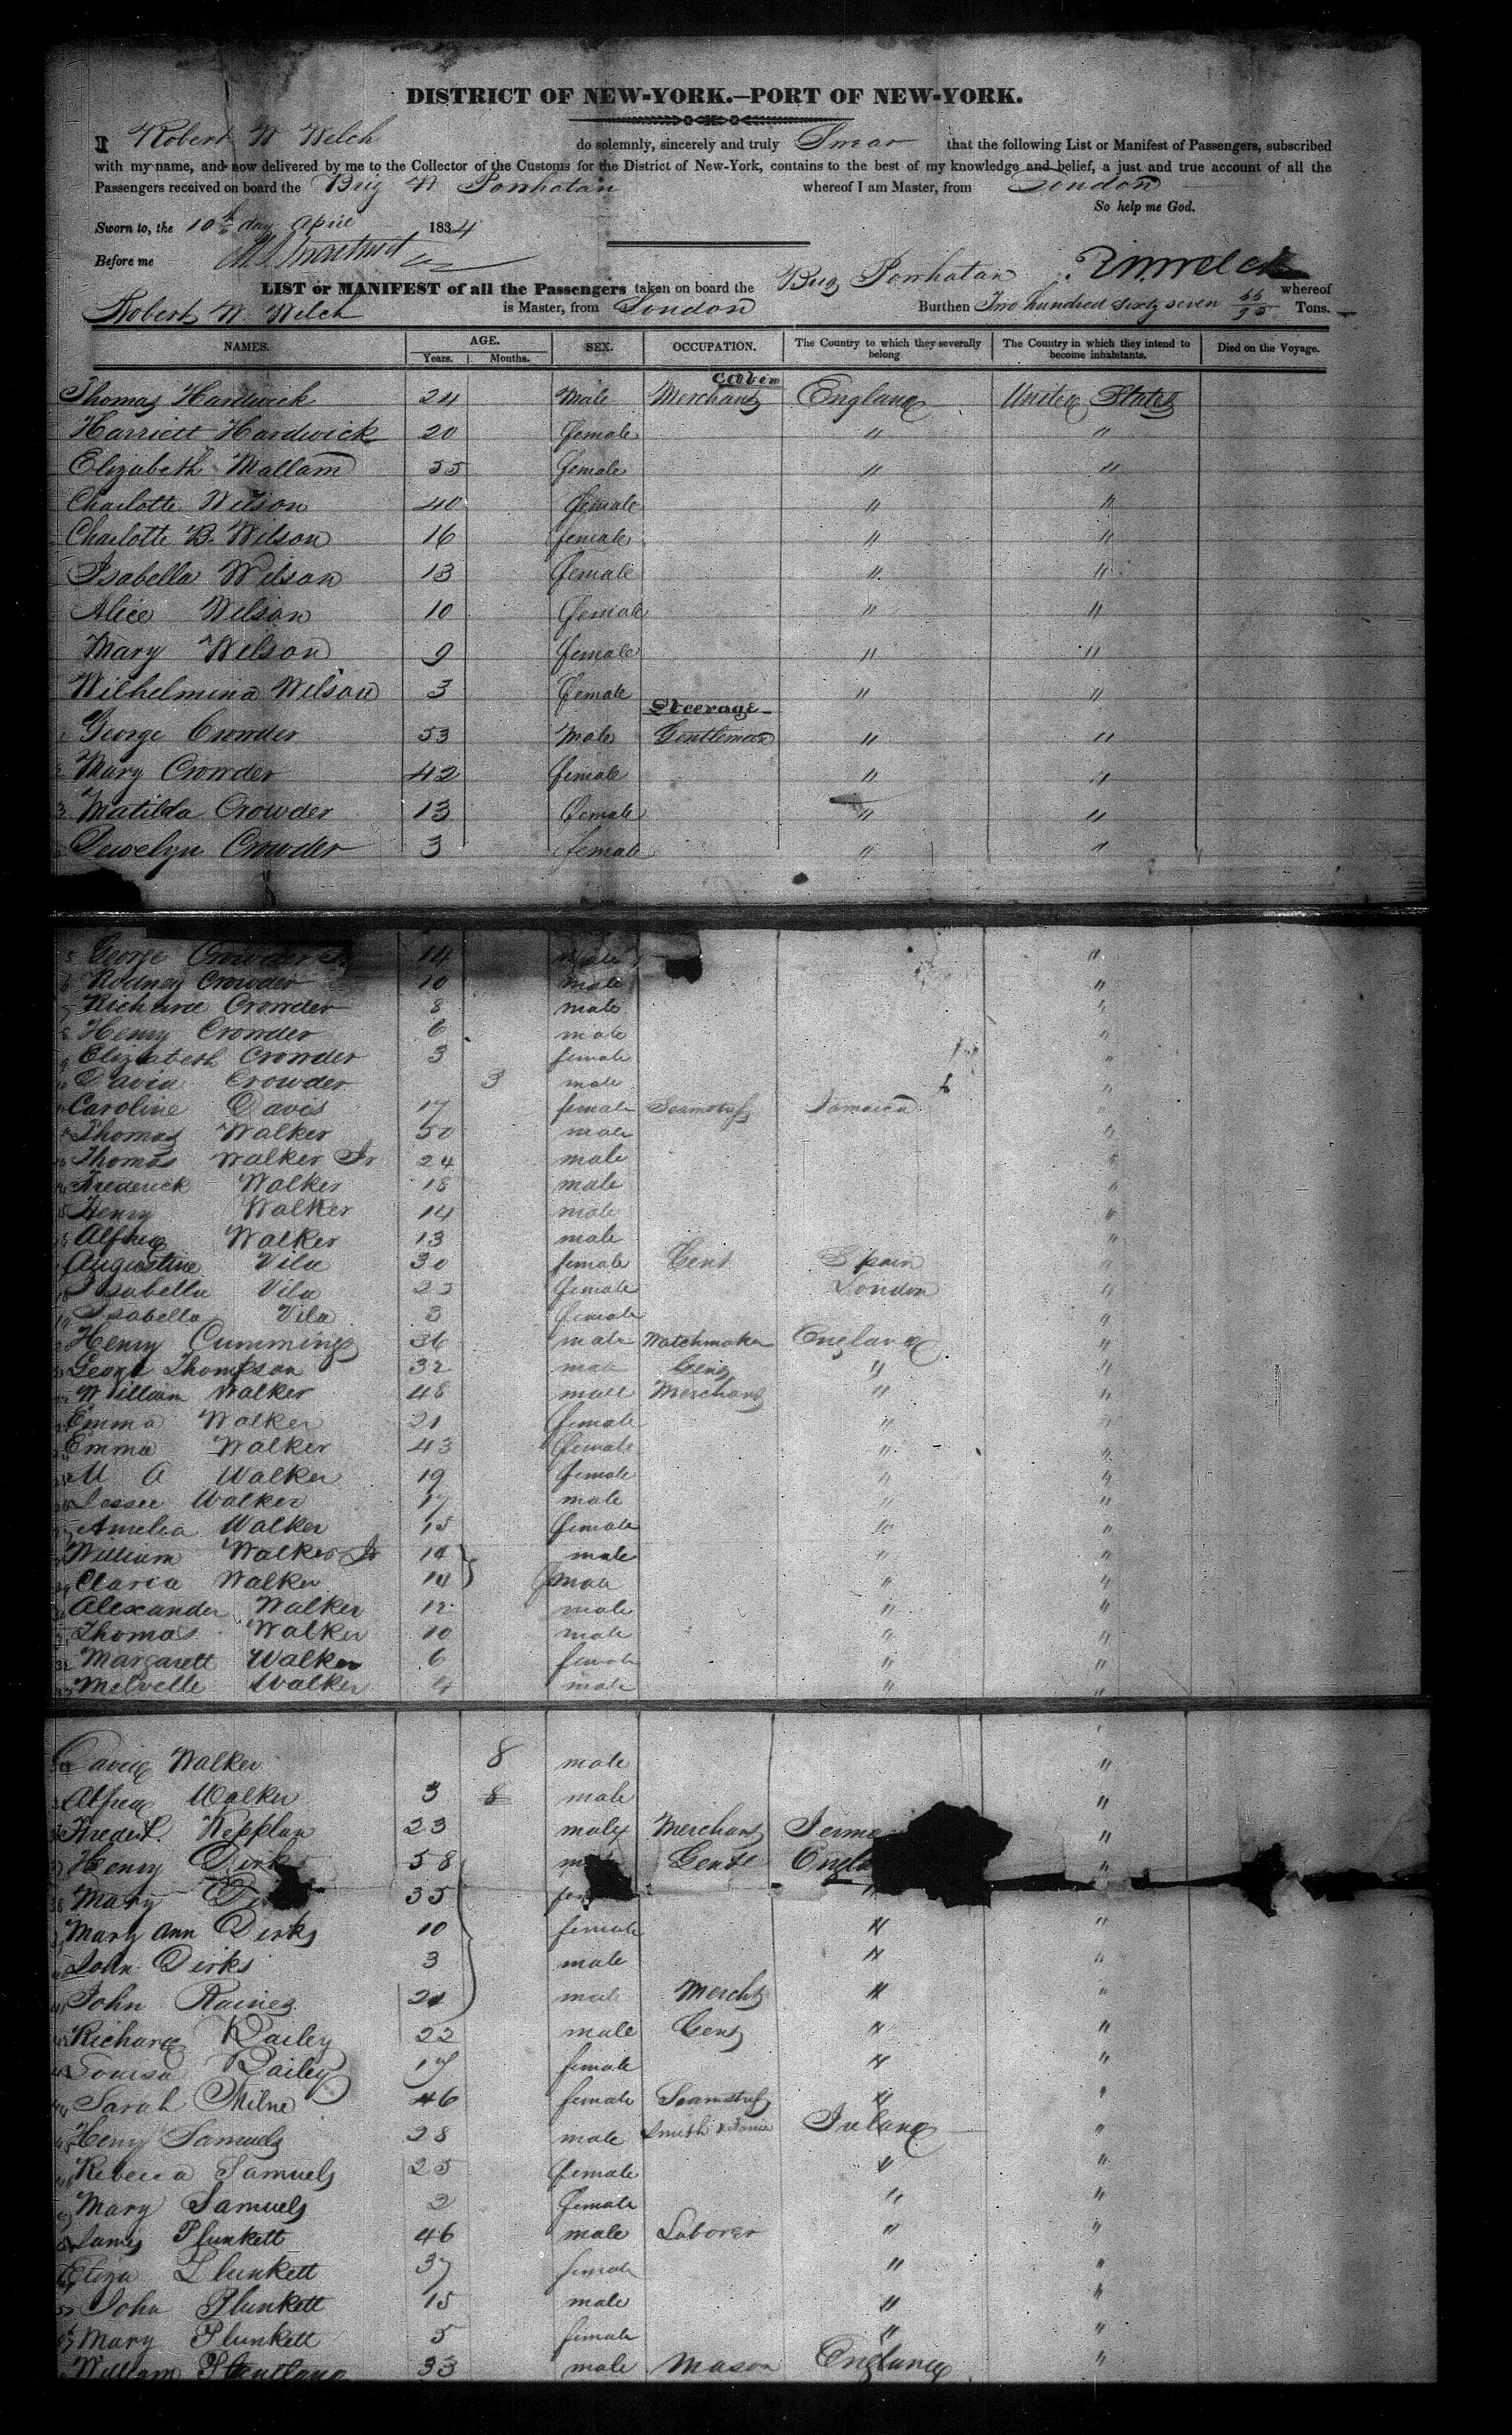 DISTRICT OF NEW-YORK.—PORT OF NEW-YORK.
I Robert W Welch do solemnly, sincerely and truly Swear that the following List or Manifest of Passengers, subscribed
with my name, and now delivered by me to the Collector of the Customs for the District of New-York, contains to the best of my knowledge and belief, a just and true account of all the
Passengers received on board the Brig Powhatan whereof I am Master, from London
So help me God.
Sworn to, the 10th day April 1834
Before me
R W Welch
LIST or MANIFEST of all the Passengers taken on board the Brig Powhatan whereof
Robert W. Welch is Master, from London Burthen Two hundred sixty seven 66/95 Tons.
NAMES. AGE. SEX. OCCUPATION. The Country to which they severally belong The Country in which they intend to become inhabitants. Died on the Voyage.
Years. Months.
Cabin
Thomas Hardwick 24 Male Merchant England United States
Harriett Hardwick 20 female " "
Elizabeth Mallam 55 female " "
Charlotte Wilson 40 female " "
Charlotte B. Wilson 16 female " "
Isabella Wilson 13 female " "
Alice Wilson 10 female " "
Mary Wilson 9 female " "
Wilhelmina Wilson 3 female " "
Steerage
1 George Crowder 53 Male Gentleman " "
2 Mary Crowder 42 female " "
3 Matilda Crowder 13 female " "
Crowder 3 female " "
5 George Crowder Jr. 14 male "
6 Rodney Crowder 10 male "
7 Richard Crowder 8 male "
8 Henry Crowder 6 male "
9 Elizabeth Crowder 3 female "
10 David Crowder 3 male "
11 Caroline Davis 17 female Seamstress Jamaica "
12 Thomas Walker 50 male "
13 Thomas Walker Jr 24 male "
14 Frederick Walker 18 male "
15 Henry Walker 14 male "
16 Alfred Walker 13 male "
17 Augustine Vila 30 female Gent Spain "
18 Isabella Vila 23 female London "
19 Isabella Vila 3 female "
20 Henry Cummings 36 male Watchmaker England "
21 George Thompson 32 male Gent " "
22 William Walker 48 male Merchant " "
23 Emma Walker 21 female " "
24 Emma Walker 43 female " "
25 M A Walker 19 female " "
26 Jesse Walker 17 male " "
27 Amelia Walker 15 female " "
28 William Walker Jr 14 male " "
29 Clara Walker 14 female " "
30 Alexander Walker 12 male " "
31 Thomas Walker 10 male " "
32 Margarett Walker 6 female " "
33 Melvelle Walker 4 male " "
34 David Walker 8 male "
35 Alfred Walker 3 8 male "
36 Fredk. Kepplan 23 male Merchant "
37 Henry Dirks 58 Gent "
38 Mary 35 " "
39 Mary Ann Dirks 10 female " "
40 John Dirks 3 male " "
41 John Raines 21 male Mercht " "
42 Richard Bailey 22 male Gent " "
43 Louisa Bailey 17 female " "
44 Sarah Milne 46 female Seamstress " "
45 Henry Samuels 28 male Smith & Ireland "
46 Rebecca Samuels 25 female " "
47 Mary Samuels 2 female " "
48 James Plunkett 46 male Laborer " "
49 Eliza Plunkett 37 female " "
50 John Plunkett 15 male " "
51 Mary Plunkett 5 female " "
William 33 male Mason England "